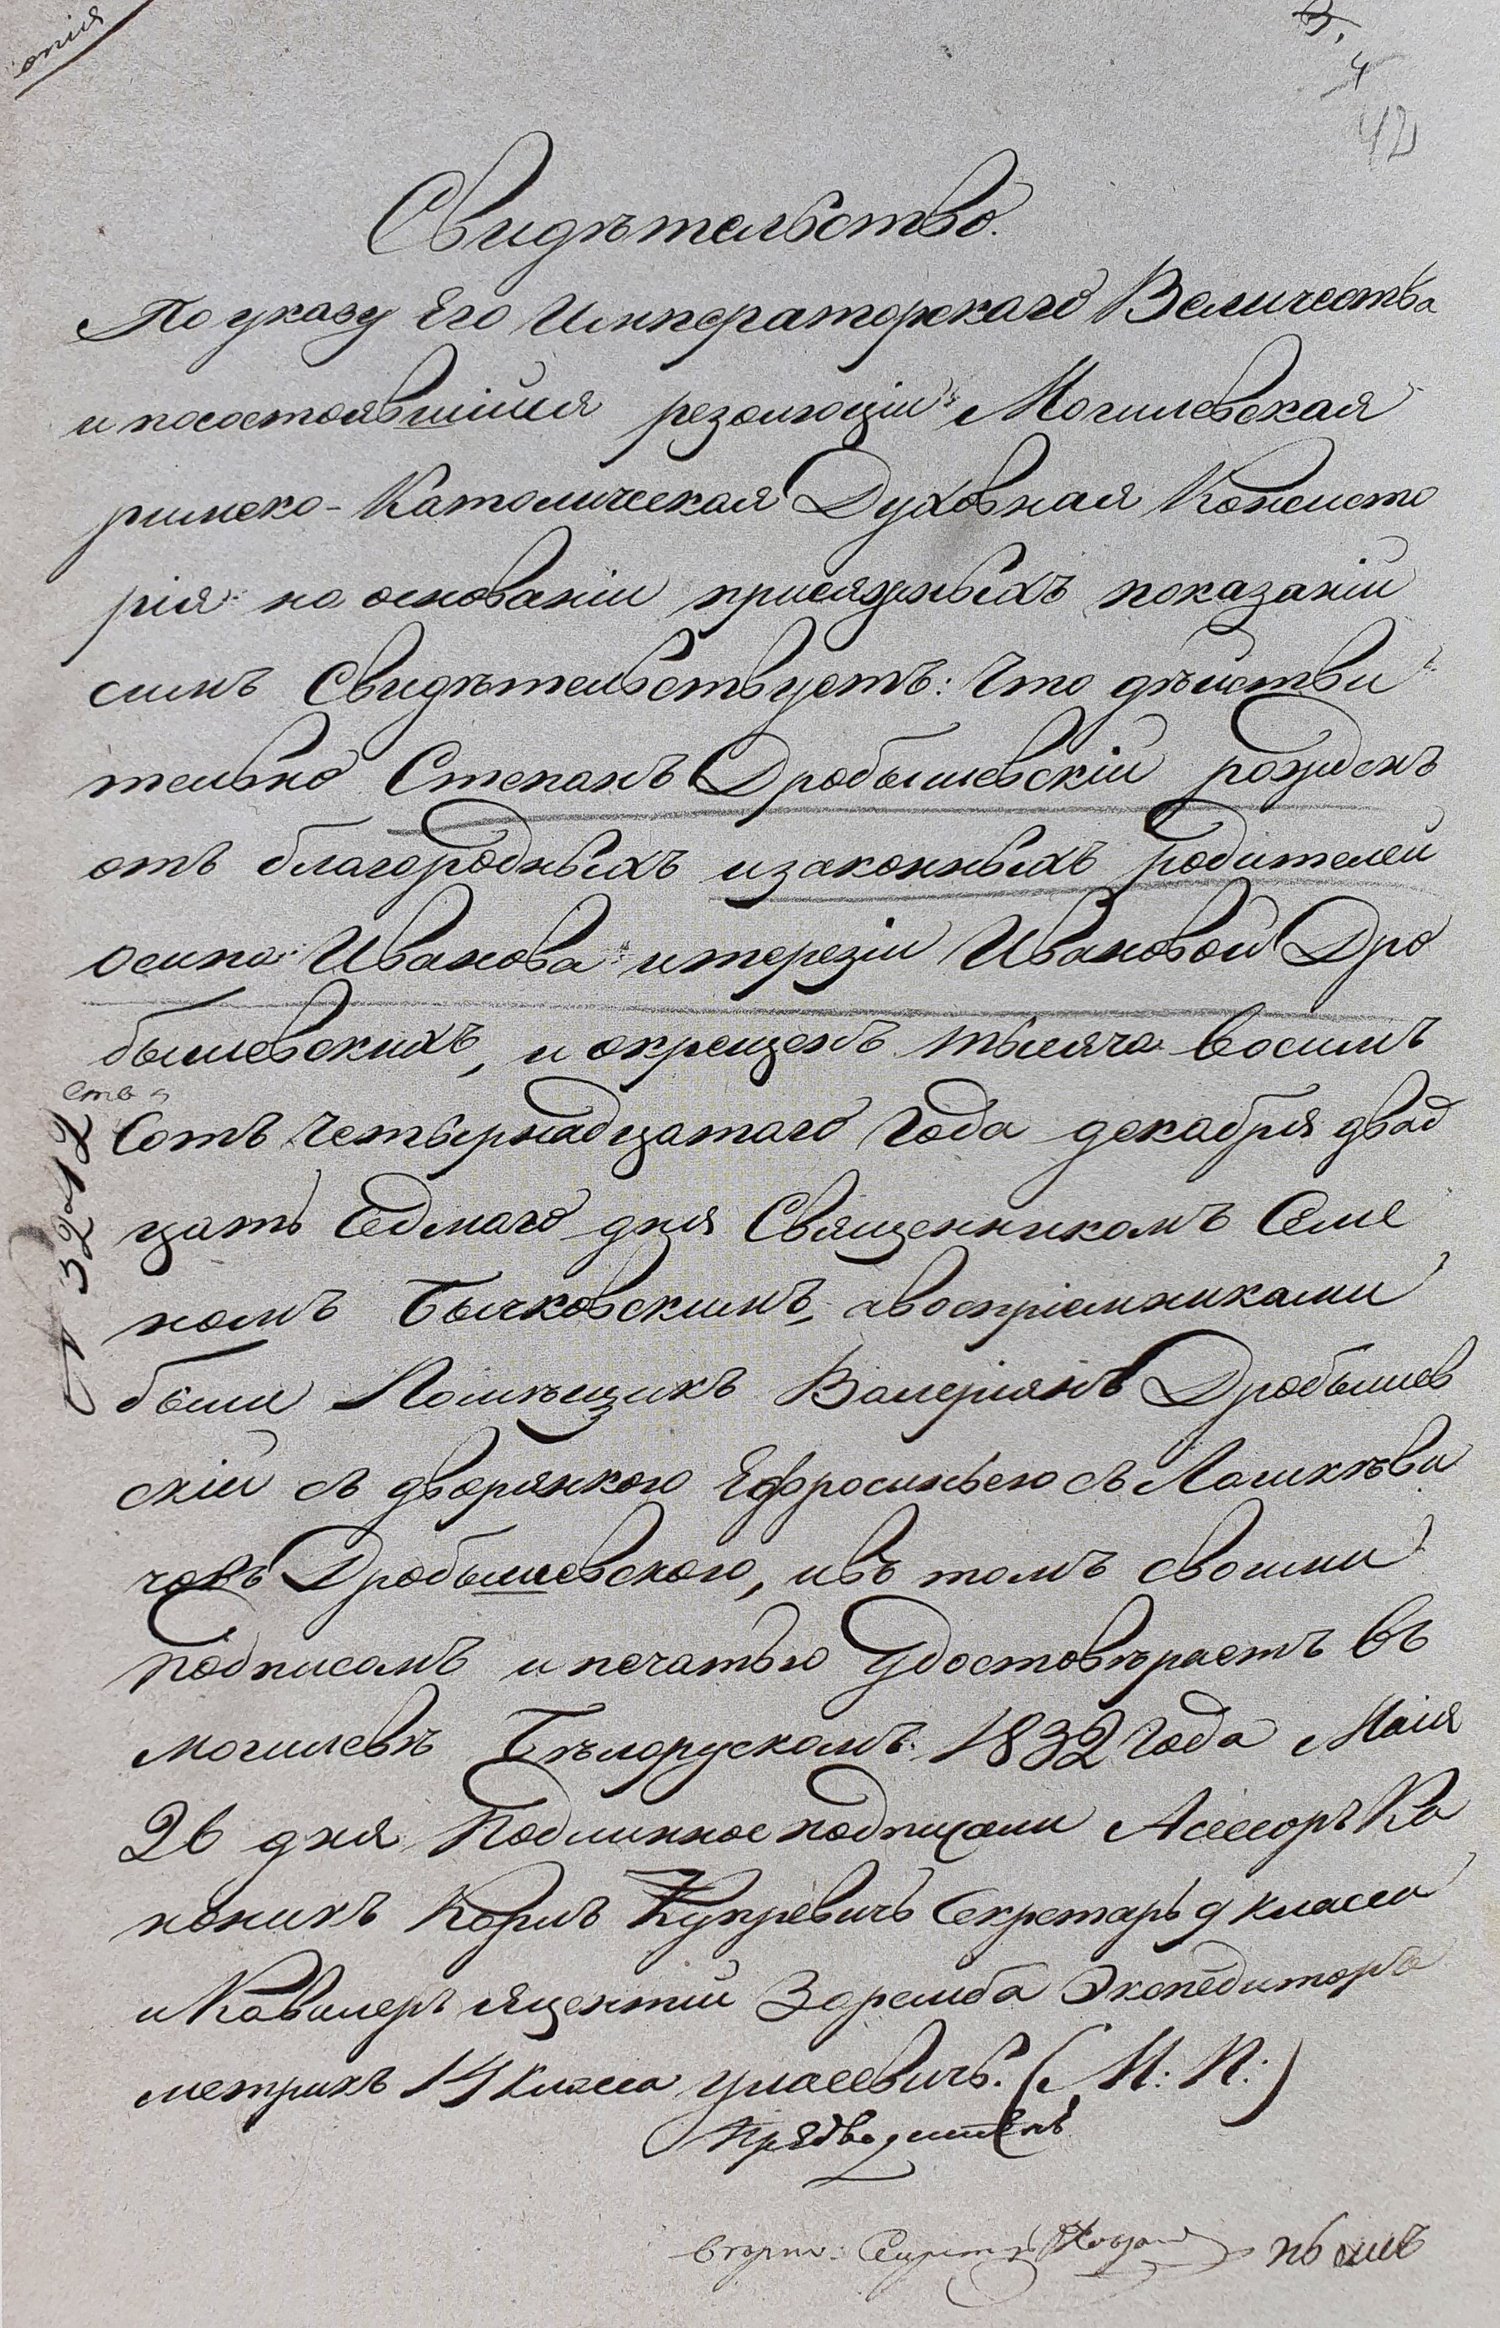 опія
3.
4
42
Свидѣтельство.
По указу Его Императорскаго Величества
и посостоявшійся резолюціи Могилевская
римско-Католическая Духовная Консисто
рія на основаніи присяжныхъ показаній
симъ Свидѣтельствуетъ: что дѣйстви
тельно Степанъ Дробышевскій рожденъ
отъ благородныхъ изаконныхъ родителей
Осипа Иванова итерезіи Ивановой Дро
бышевскихъ, и окрещенъ тысяча восимъ
Сотъ Четырнадцатаго Года декабря двад
цать Седмаго дня Священникомъ Семе
номъ Бычковскимъ, авоспріемниками
были Помѣщикъ Валеріянъ Дробышев
скій съ дворянкою Ефросиньею съ Лашкѣви
човъ Дробышевскою, ивъ томъ своими
Подписомъ и печатью Удостовѣряетъ въ
Могилевѣ Бѣлорускомъ 1832 Года Маія
26 дня Подлинное подписали Асессоръ Ка
ноникъ Корлъ Купревичъ Секретарь 9 класса
и Кавалеръ яцентій Заремба Экспедиторъ
метрикъ 14 Класса уласевичъ. (М: П:)
Предводитель
№ 3212